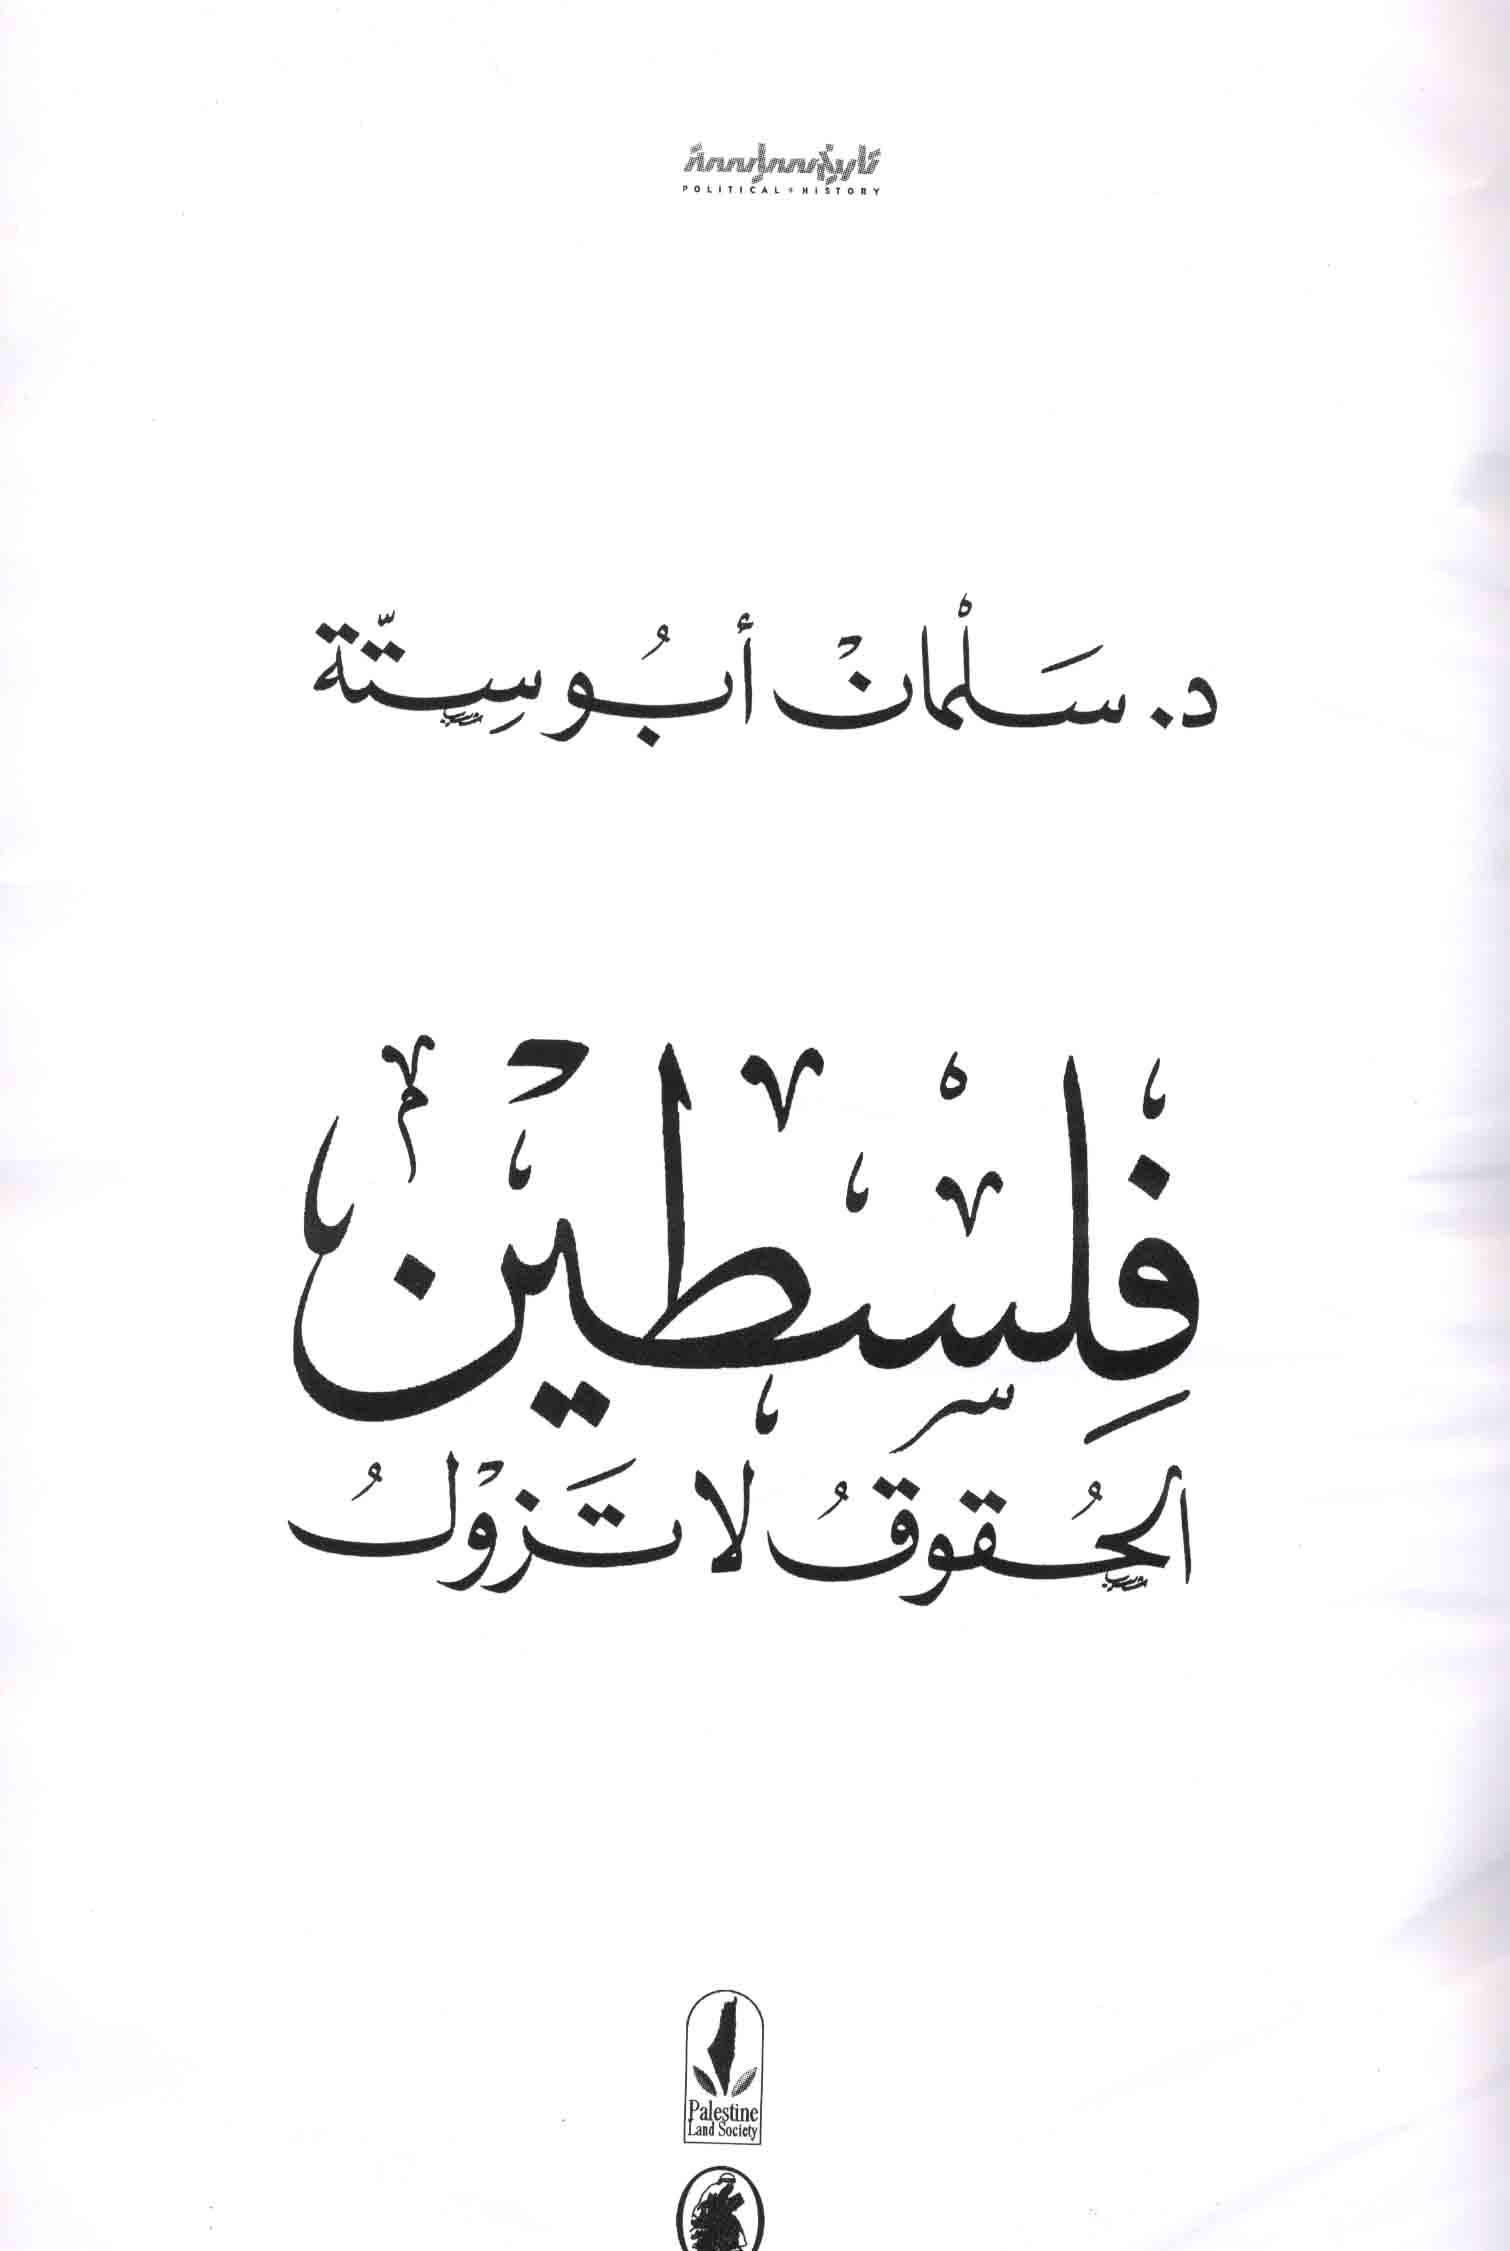 تاريخ سياسة
POLITICAL + HISTORY
د. سَلْمانْ أبُو سِتّة
فِلِسْطِينْ
الحُقوقُ لا تَزوْلُ
Palestine
Land Society